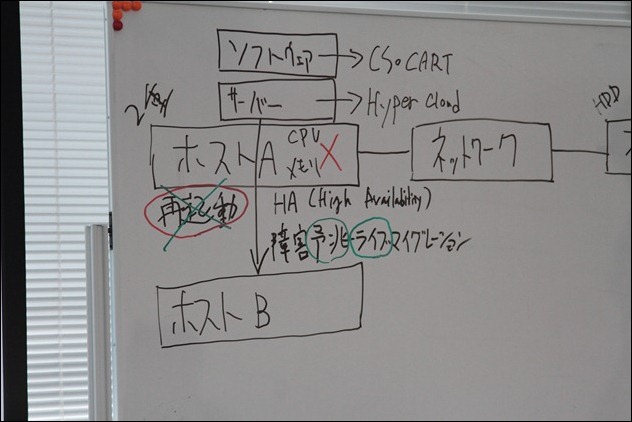 ソフトウェア → CS・CART
サーバー → Hyper Cloud
HDD
ホストA CPU
メモリ ×
ネットワーク
再起動
HA (High Availability)
障害予兆 ライブマイグレーション
ホスト B